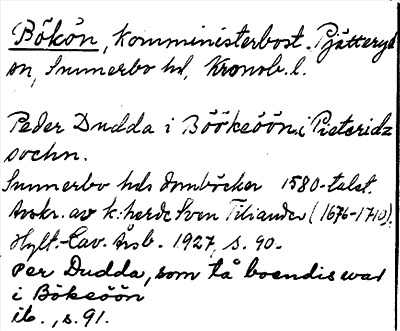 Bökön, komministerbost. Pjätteryd
sn, Sunnerbo hd, Kronob. l.
Peder Dudda i Böökeöön i Pieteridz
sochn.
Sunnerbo hds domböcker 1580-talet.
Avskr. av k:herde Sven Tiliander (1676-1710).
Hylt.-Cav. Årsb. 1927, s. 90.
Per Dudda, som tå boendis war
i Bökeöön
ib., s. 91.